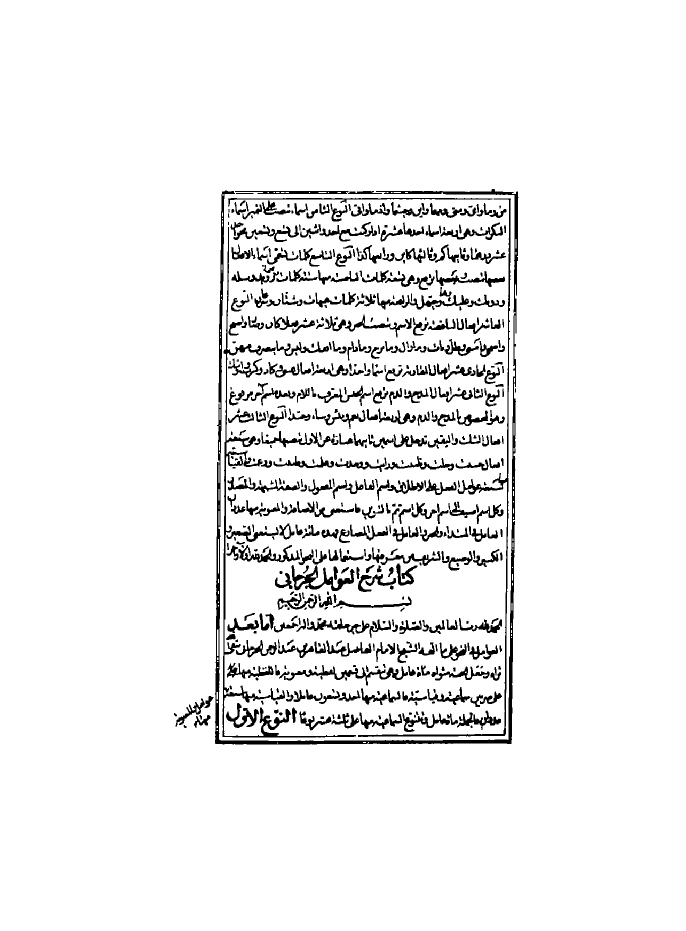 من وما وأى ومتى ومهما وأين وحيثما وإذما وأنى النوع الثامن أسماء تنصب على التمييز أسماء
النكرات وهى أربعة أسماء أحدها عشرة إذا ركبت مع أحد واثنين إلى تسع وتسعين نحو أحد
عشر وثانيها كم وثالثها كاين ورابعها كذا النوع التاسع كلمات تسمى أسماء الأفعال
بعضها تنصب وبعضها ترفع وهى تسع كلمات الناصبة منها ستة كلمات رويد وبله
ودونك وعليك وها وحيهل والرافعة منها ثلاثة كلمات هيهات وشتان وسرعان النوع
العاشر الأفعال الناقصة ترفع الاسم وتنصب الخبر وهى ثلاثة عشر فعلا كان وصار وأصبح
وأمسى وأضحى وظل وبات وما زال وما برح وما دام وما انفك وليس وما يتصرف منهن
النوع الحادى عشر أفعال المقاربة ترفع اسما واحدا وهى أربعة أفعال عسى وكاد وكرب وأوشك
النوع الثانى عشر أفعال المدح والذم ترفع اسم الجنس المعرف باللام وبعده اسم آخر مرفوع
وهو المخصوص بالمدح والذم وهى أربعة أفعال نعم وبئس وساء وحبذا النوع الثالث عشر
أفعال الشك واليقين تدخل على اسمين ثانيهما عبارة عن الأول تنصبهما جميعا وهى سبعة
أفعال حسبت وخلت وظننت ورأيت ووجدت وعلمت وزعمت والقياسية
سبعة عوامل الفعل على الإطلاق واسم الفاعل واسم المفعول والصفة المشبهة والمصدر
وكل اسم أضيف إلى اسم آخر وكل اسم تم بالتنوين فاستغنى عن الإضافة والمعنوية منها عددان
العامل فى المبتداء والخبر والعامل فى الفعل المضارع فهذه مائة عامل لا يستغنى الصغير و
الكبير والوضيع والشريف عن معرفتها واستعمالها على النحو المذكور والحمد لله أولا وآخرا
كتاب شرح العوامل الجرجانى
بسم الله الرحمن الرحيم
الحمد لله رب العالمين والصلوة والسلام على خير خلقه محمد وآله أجمعين أما بعد
العوامل فى النحو على ما ألفه الشيخ الإمام الفاضل عبد القاهر بن عبد الرحمن الجرجانى سقى
ثراه وجعل الجنة مثواه مائة عامل وهى تنقسم إلى قسمين لفظية ومعنوية فاللفظية منها
على ضربين سماعية وقياسية فالسماعية منها أحد وتسعون عاملا والقياسية منها سبعة
فالجملة مائة عامل وتتنوع السماعية منها على ثلثة عشر نوعا النوع الأول